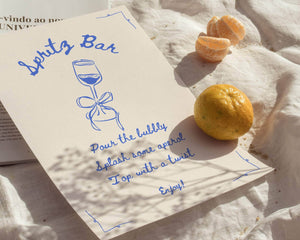 -vindo ao nos
UNIVER
Spritz Bar
Pour the bubbly
Splash some aperol
Top with a twist
Enjoy!